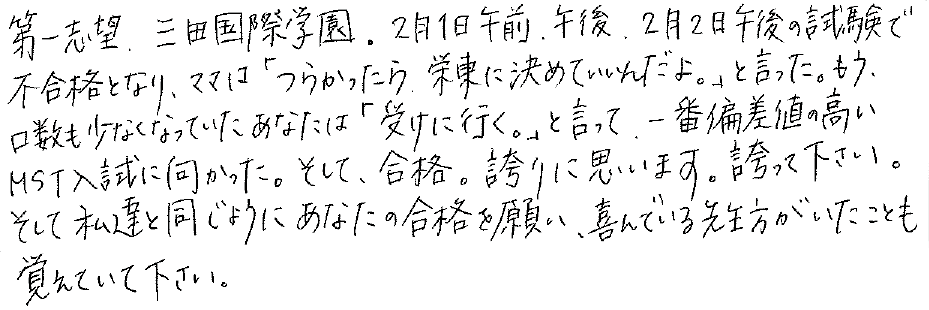 第一志望、三田国際学園。2月1日午前、午後、2月2日午後の試験で
不合格となり、ママは「つらかったら、栄東に決めていいんだよ。」と言った。もう、
口数も少なくなっていたあなたは「受けに行く。」と言って、一番偏差値の高い
MST入試に向かった。そして、合格。誇りに思います。誇って下さい。
そして私達と同じようにあなたの合格を願い、喜んでいる先生方がいたことも
覚えていて下さい。